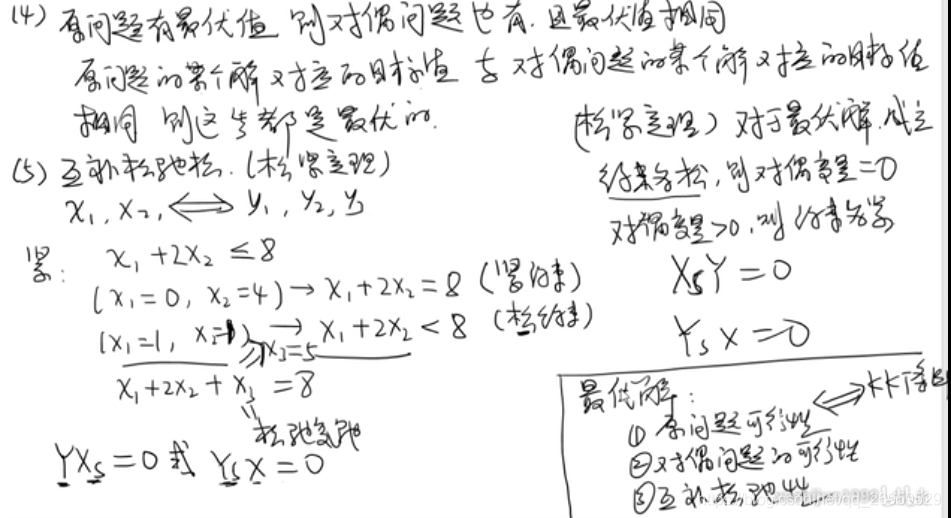 (4) 原问题有最优值 则对偶问题也有.且最优值相同
原问题的某个解对应的目标值 与 对偶问题的某个解对应的目标值
相同 则这些都是最优的.
(5) 互补松弛性.(松紧定理)
x₁, x₂, ⟺ y₁, y₂, y₃
紧: x₁+2x₂ ≤ 8
(x₁=0, x₂=4) → x₁+2x₂=8 (紧约束)
(x₁=1, x₂=1) → x₁+2x₂<8 (松约束)
x₃=5
x₁+2x₂+x₃ = 8
松弛变量
YXₛ=0 或 YₛX=0
(松紧定理) 对于最优解.成立
约束为松,则对偶变量=0
对偶变量>0,则约束为紧
XₛY=0
YₛX=0
最优解: ⟺ KKT条件
① 原问题可行性
② 对偶问题的可行性
③ 互补松弛性